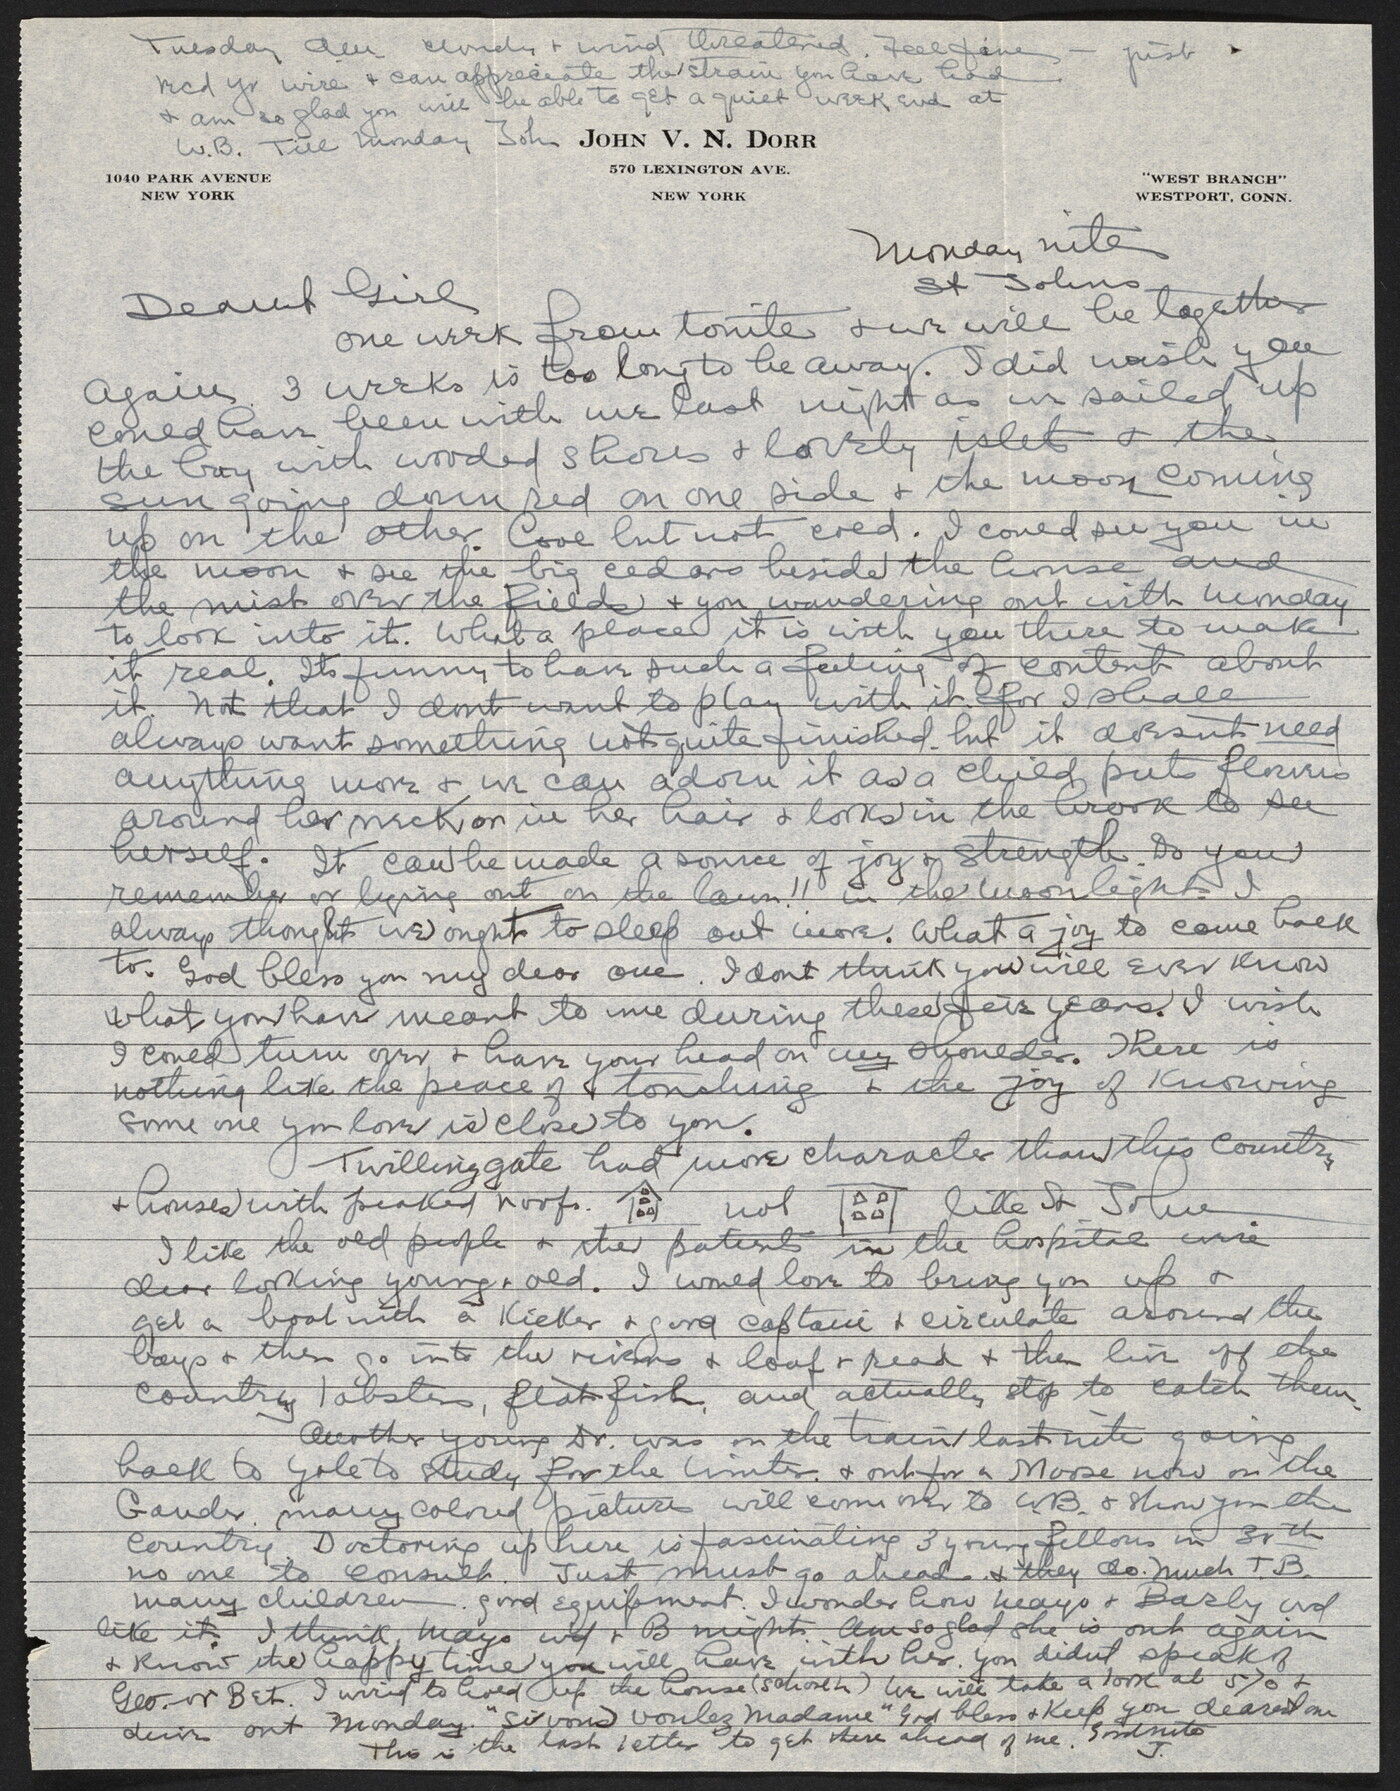 Tuesday cloudy & wind threatened. Feel fine — just
recd yr wire & can appreciate the strain you have had
& am so glad you will be able to get a quiet week end at
W.B. Till Monday John
JOHN V. N. DORR
570 LEXINGTON AVE.
NEW YORK
1040 PARK AVENUE
NEW YORK
"WEST BRANCH"
WESTPORT, CONN.
Monday nite
St Johns
Dearest Girl
one week from tonite & we will be together
again. 3 weeks is too long to be away. I did wish you
could have been with me last night as we sailed up
the bay with wooded shores & lovely islets & the
sun going down red on one side & the moon coming
up on the other. Cool but not cold. I could see you in
the moon & see the big cedars beside the house and
the mist over the fields & you wandering out with Monday
to look into it. What a place it is with you there to make
it real. Its funny to have such a feeling of content about
it. Not that I dont want to play with it for I shall
always want something not quite finished but it doesnt need
anything more & we can adorn it as a child puts flowers
around her neck or in her hair & looks in the brook to see
herself. It can be made a source of joy & strength. Do you
remember or lying out on the lawn!! in the moonlight. I
always thought we ought to sleep out more. What a joy to come back
to. God bless you my dear one. I dont think you will ever know
what you have meant to me during these five years. I wish
I could turn over & have your head on my shoulder. There is
nothing like the peace of touching & the joy of knowing
some one you love is close to you.
Twillinggate had more character than this country
& houses with peaked roofs. not like St Johns
I like the old people & the patients in the hospital were
dear looking young & old. I would love to bring you up &
get a boat with a kicker & good captain & circulate around the
bays & then go into the rivers & loaf & read & then live off the
country lobsters, flat fish, and actually stop to catch them.
Another young Dr. was on the train last nite going
back to Yale to study for the winter. & out for a Moose now on the
Gander. many colored pictures will come over to W.B. & show you the
country. Doctoring up here is fascinating 3 young fellows in
no one to consult. Just must go ahead & they do. Much T.B.
many children. good equipment. I wonder how Mayo & Barby wd
like it. I think Mayo wd & B might. Am so glad she is out again
& know the happy time you will have with her. You didnt speak of
Geo. or Bet. I wired to hold up the house We will take a look at 570 &
drive out Monday. "Si vous voulez Madame" God bless & keep you dearest one
This is the last letter to get there ahead of me. Goodnite
J.